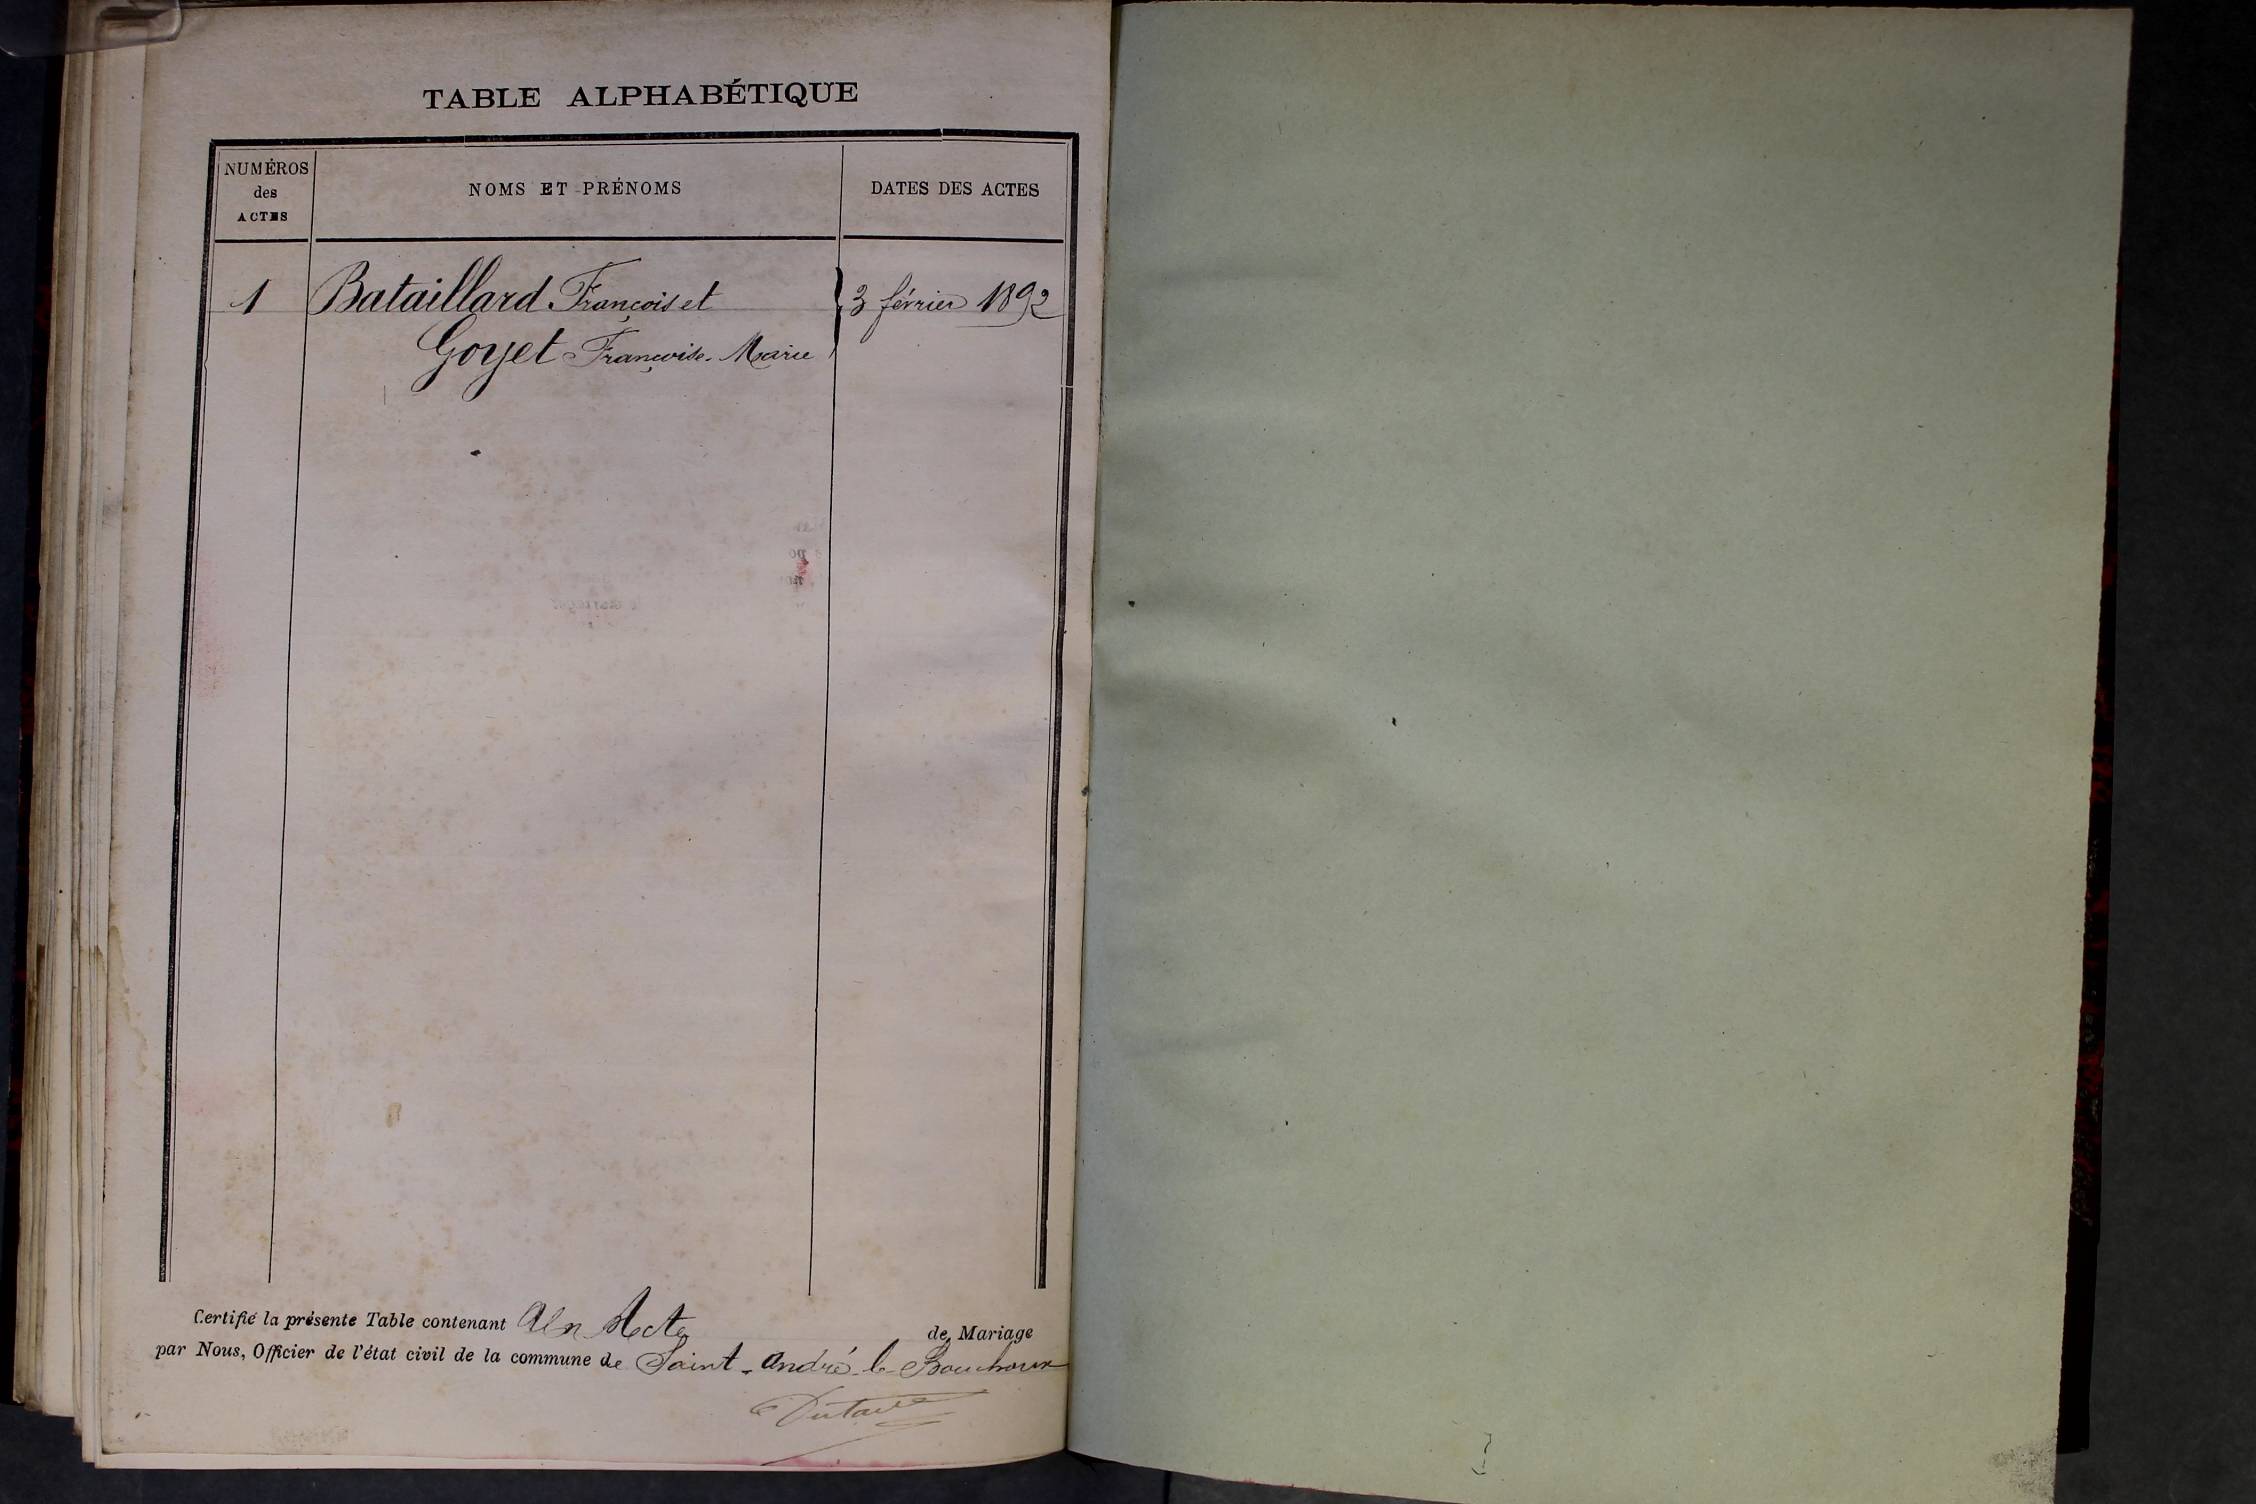 TABLE ALPHABÉTIQUE
NUMÉROS
des
ACTES
NOMS ET PRÉNOMS
DATES DES ACTES
1 Bataillard François et 3 février 1892
Goyet Françoise-Marie
Certifié la présente Table contenant Un Acte de Mariage
par Nous, Officier de l'état civil de la commune de Saint-André-le-Bouchoux